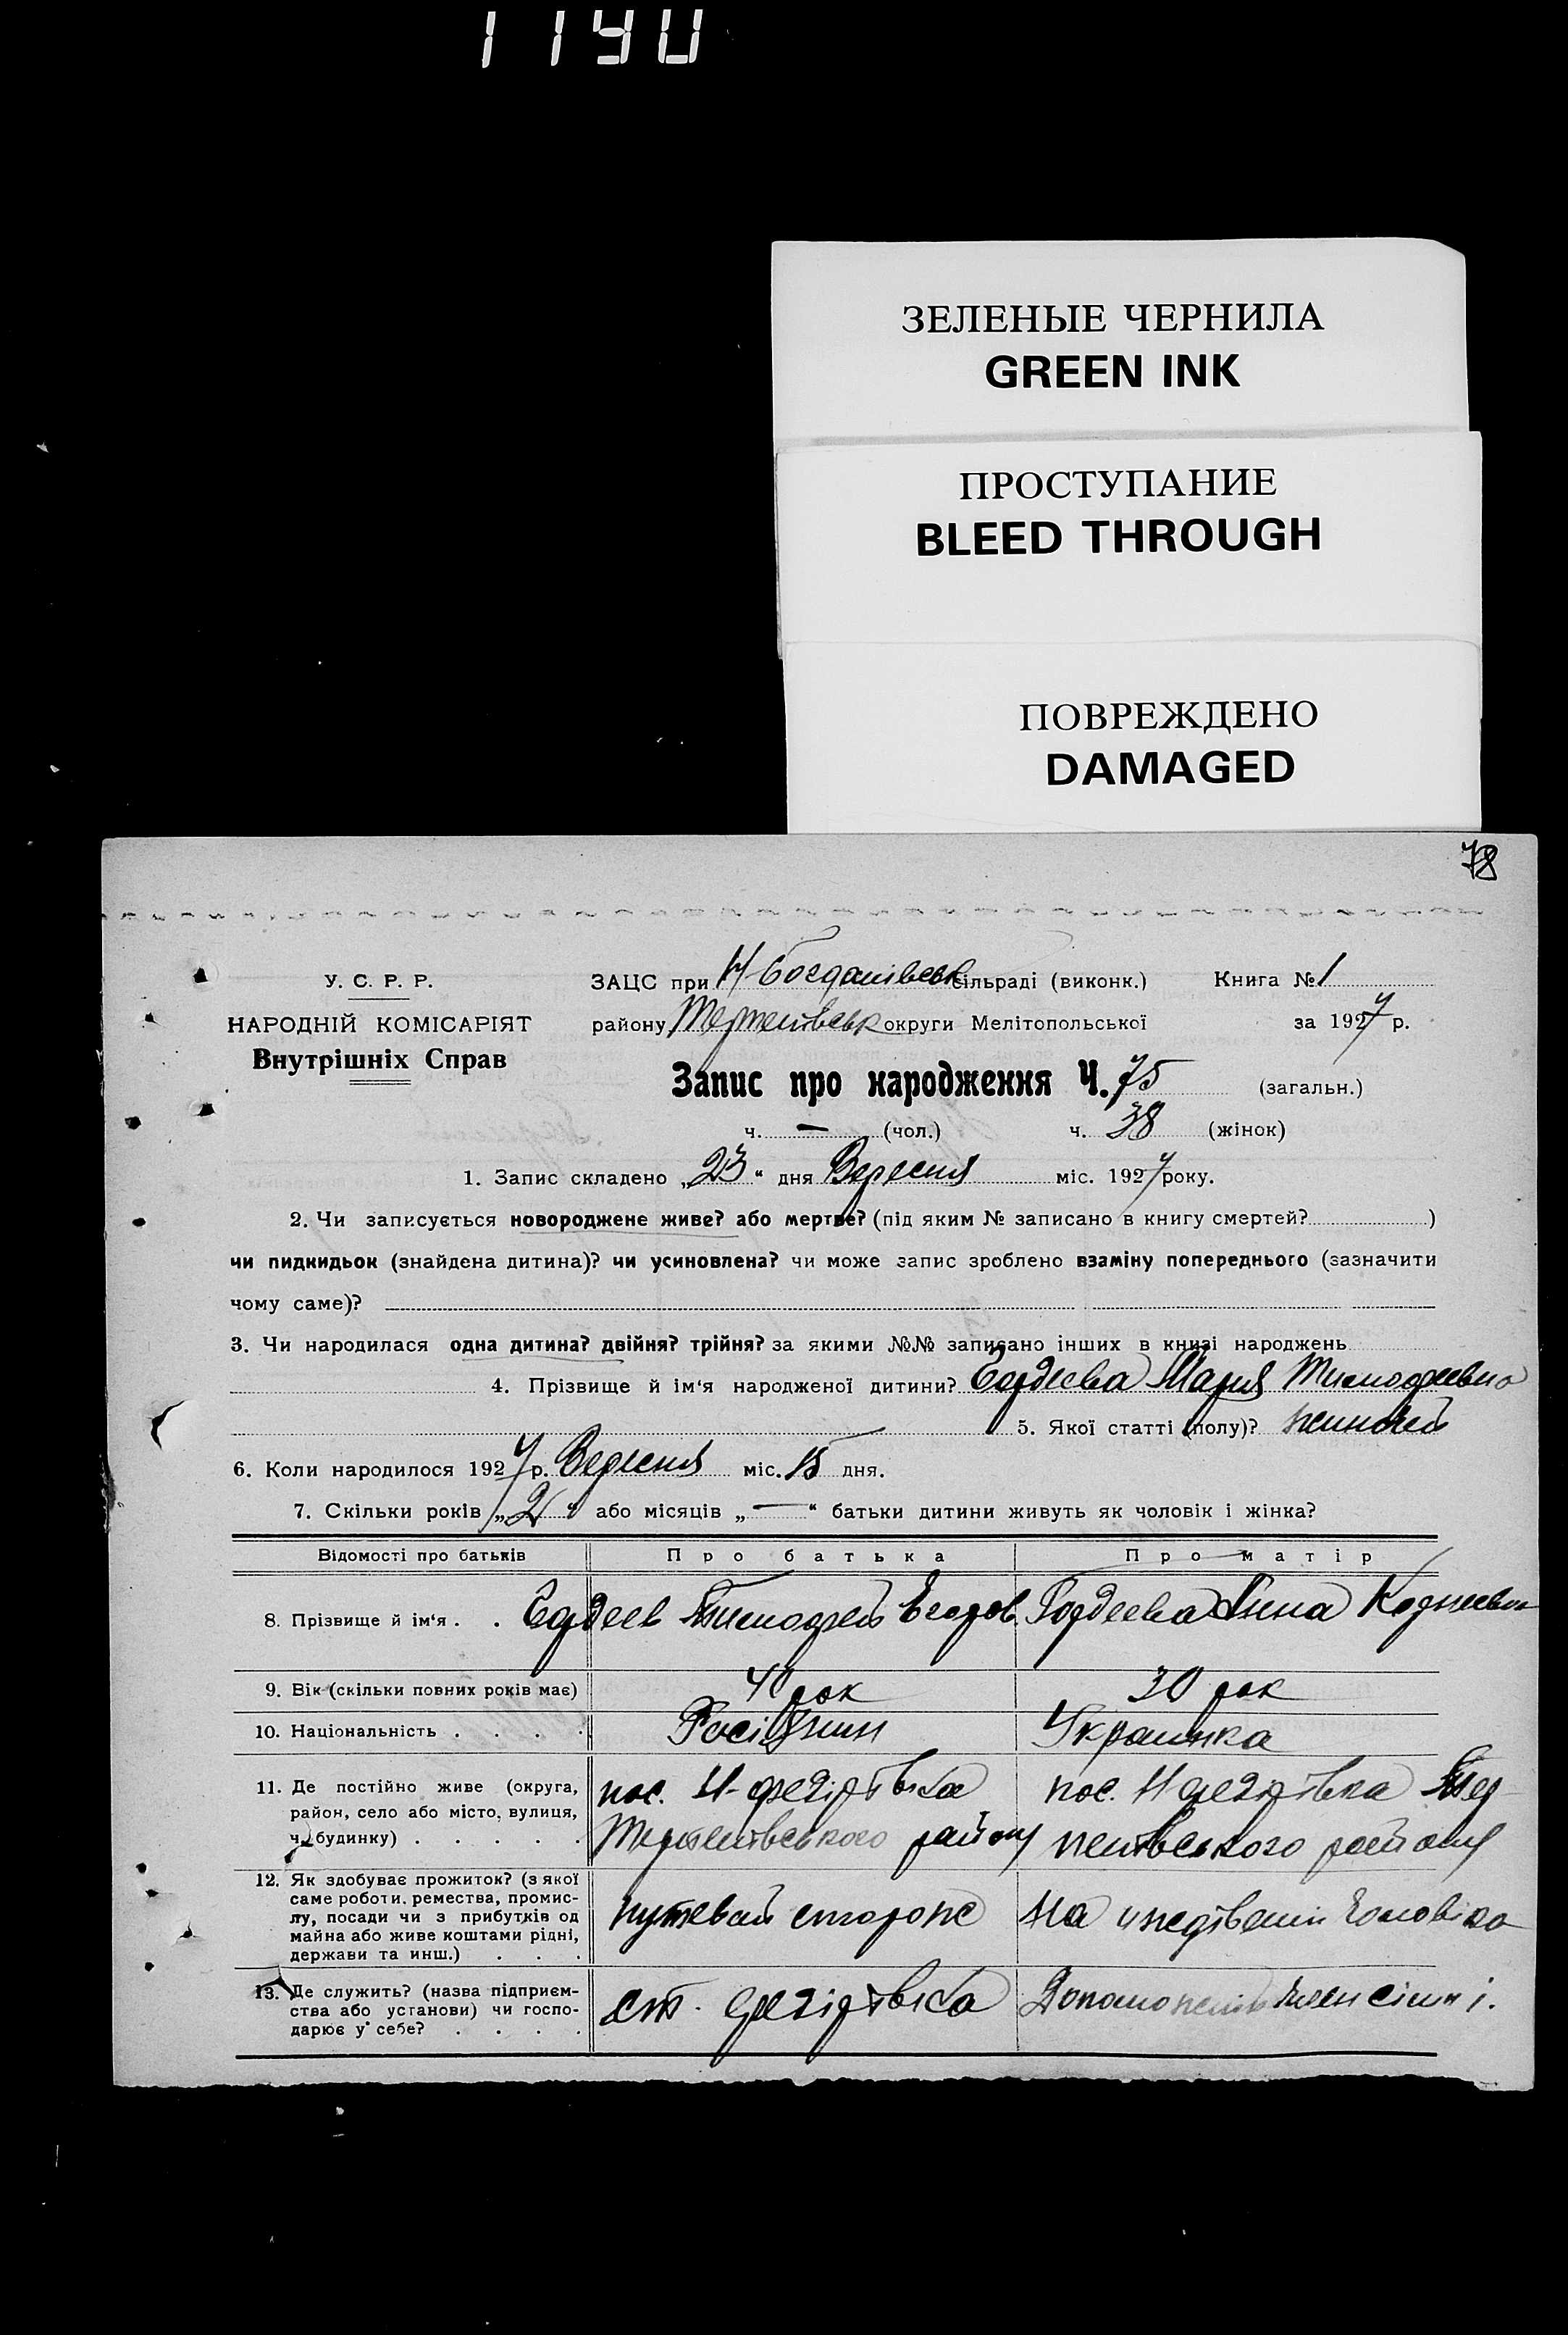 1190
ЗЕЛЕНЫЕ ЧЕРНИЛА
GREEN INK
ПРОСТУПАНИЕ
BLEED THROUGH
ПОВРЕЖДЕНО
DAMAGED
78
У. С. Р. Р.
НАРОДНІЙ КОМІСАРІЯТ
Внутрішніх Справ
ЗАЦС при Н-Богданівськ сільраді (виконк.) Книга № 1
району Терпенівськ округи Мелітопольської за 1927 р.
Запис про народження Ч. 75 (загальн.)
ч. — (чол.) ч. 38 (жінок)
1. Запис складено „23“ дня Вересня міс. 1927 року.
2. Чи записується новороджене живе? або мертве? (під яким № записано в книгу смертей? )
чи пидкидьок (знайдена дитина)? чи усиновлена? чи може запис зроблено взаміну попереднього (зазначити
чому саме)?
3. Чи народилася одна дитина? двійня? трійня? за якими №№ записано інших в книзі народжень
4. Прізвище й ім‘я народженої дитини? Гордеева Мария Тимофеевна
5. Якої статті (полу)? жиночей
6. Коли народилося 1927 р. Вересня міс. 15 дня.
7. Скільки років „2“ або місяців „—“ батьки дитини живуть як чоловік і жінка?
Відомості про батьків Про батька Про матір
8. Прізвище й ім‘я . . Гордеев Тимофей Егоров. Гордеева Анна Корнеевна
9. Вік (скільки повних років має) 40 рок 30 рок
10. Національність . . . . Росіянин Украинка
11. Де постійно живе (округа,
район, село або місто, вулиця,
ч. будинку) . . . . .
пос. Н-Федорівка
Терпенівського району
пос. Н Федорівка Тер-
пенівського району
12. Як здобуває прожиток? (з якої
саме роботи, ремества, промис-
лу, посади чи з прибутків од
майна або живе коштами рідні,
держави та инш.) . . .
путевай сторож
На чоловіка
13. Де служить? (назва підприєм-
ства або установи) чи госпо-
дарює у себе? . . . .
ст. Федорівка